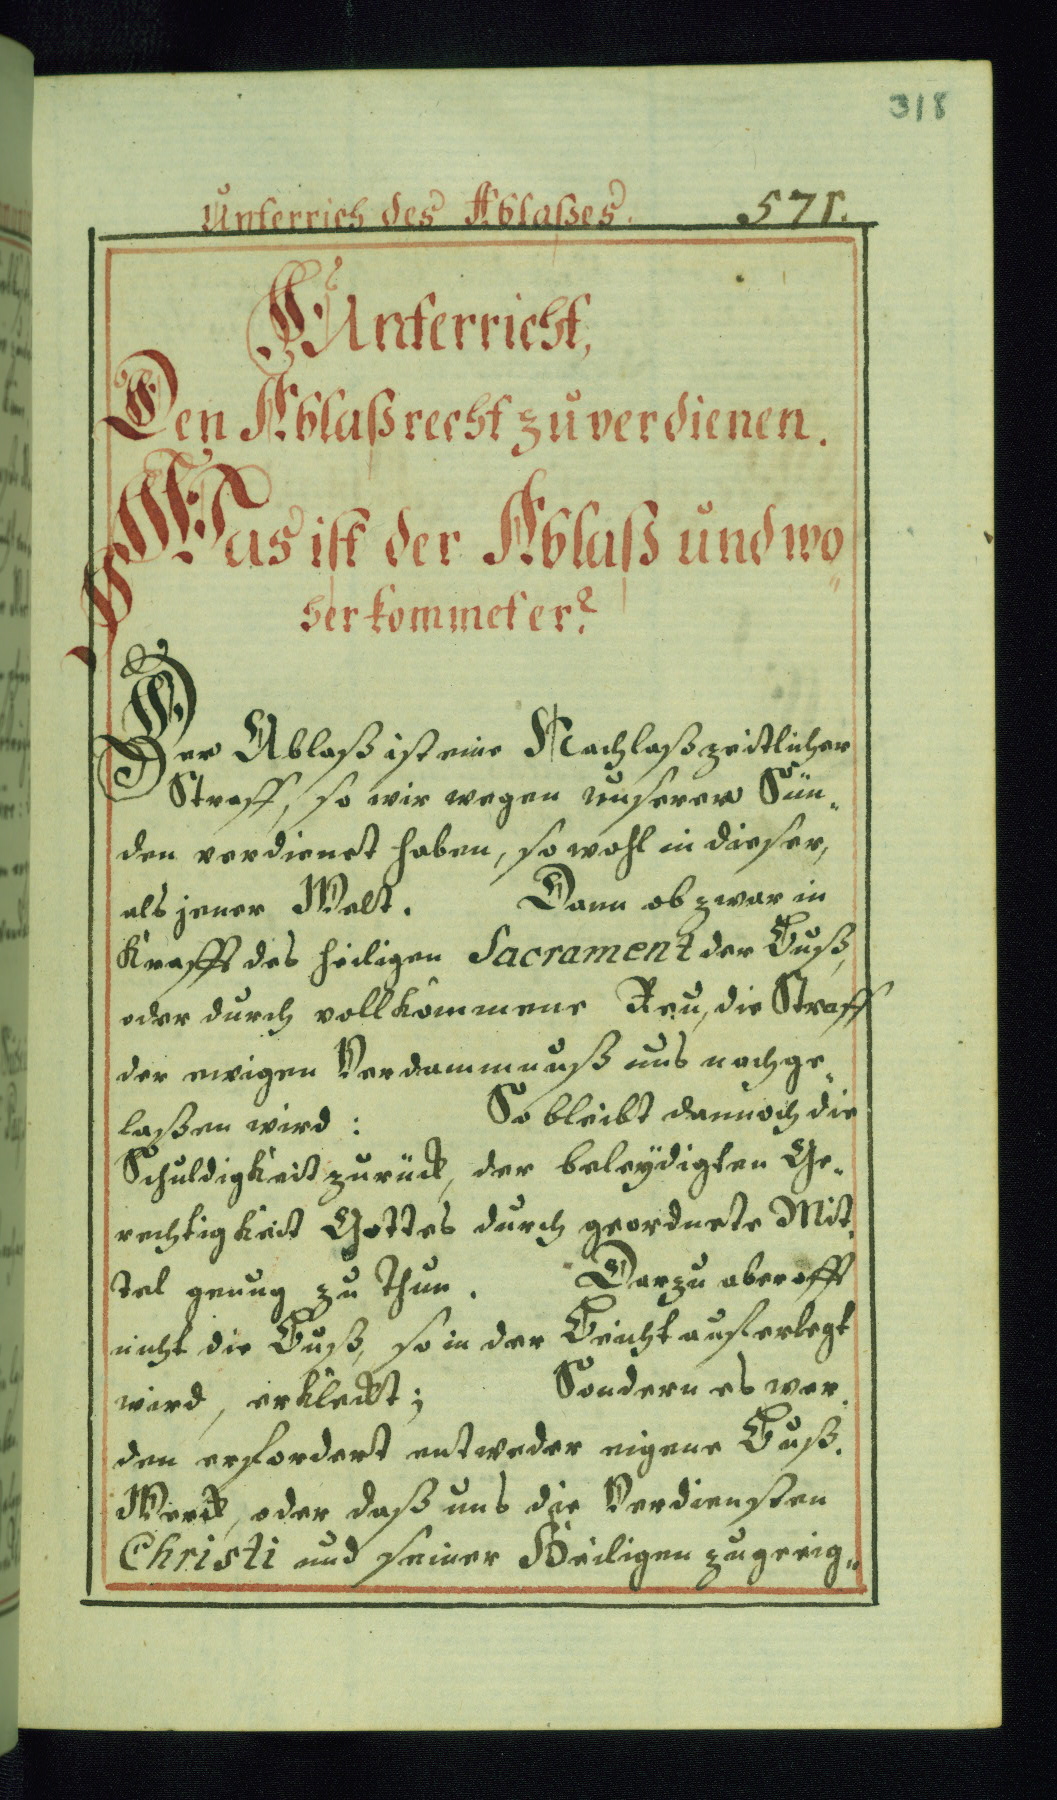 318
Unterrich des Ablaßes. 571.
Unterricht,
Den Ablaß recht zu verdienen.
Was ist der Ablaß und wo„
her kommet er?
Der Ablaß ist eine Nachlaß zeitlicher
Straff, so wir wegen unserer Sün„
den verdienet haben, so wohl in dieser,
als jener Welt. Dann ob zwar in
Krafft des heiligen Sacrament der Buß,
oder durch vollkommene Reu, die Straff
der ewigen Verdammnuß uns nachge„
laßen wird: So bleibt dannoch die
Schuldigkeit zurück, der beleydigten Ge„
rechtigkeit Gottes durch geordnete Mit„
tel genug zu thun. Darzu aber offt
nicht die Buß, so in der Beicht auferlegt
wird, erkleckt; Sondern es wer„
den erfordert entweder eigene Buß„
Werck, oder daß uns die Verdiensten
Christi und seiner Heiligen zugeeig„